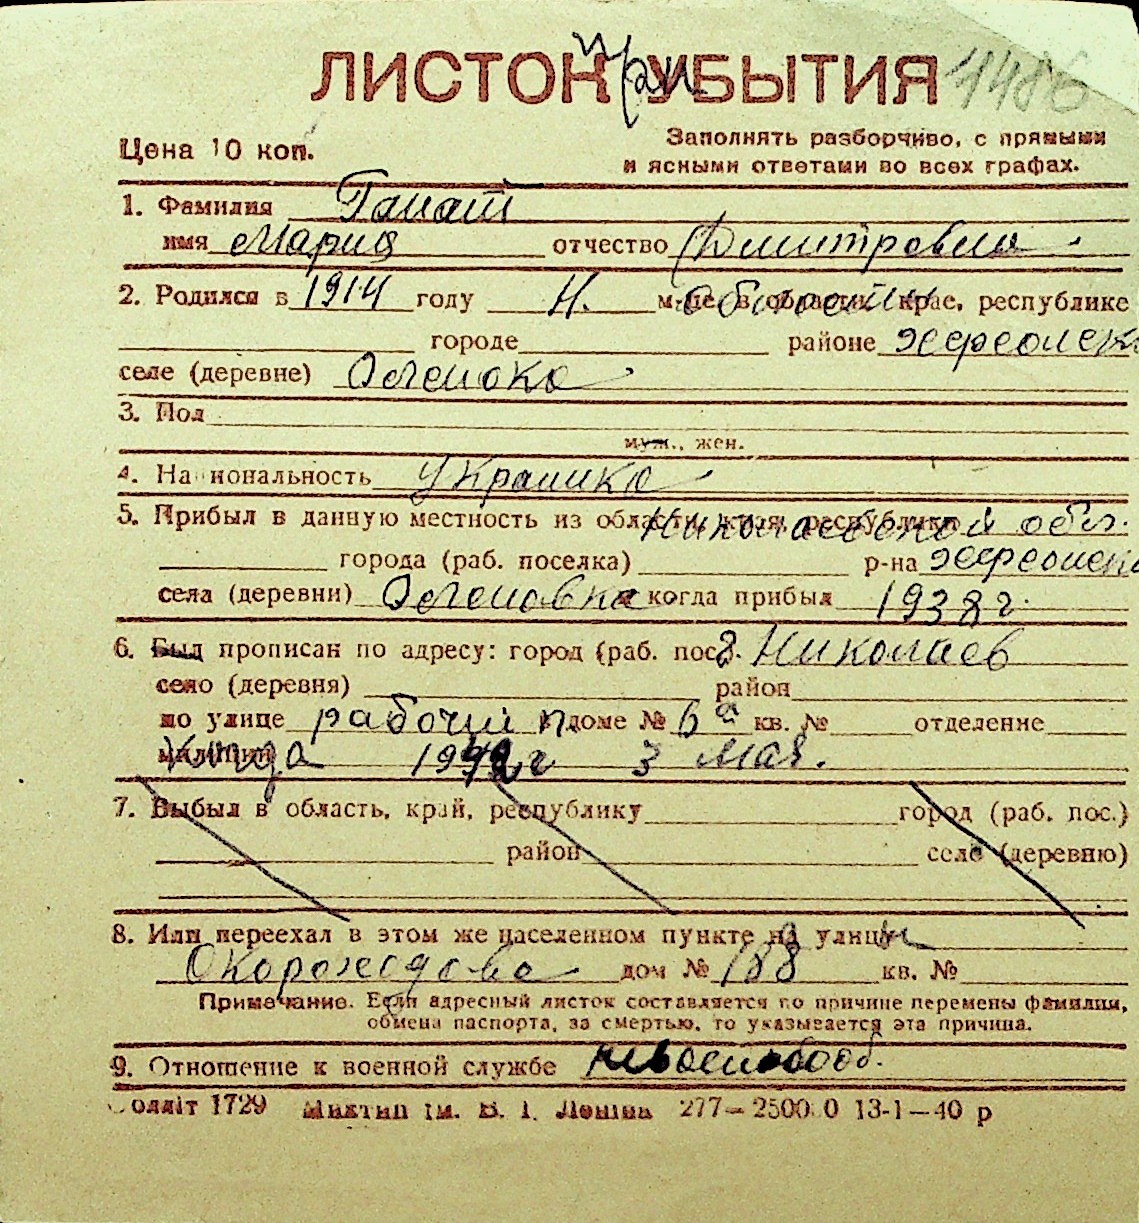 ЛИСТОК УБЫТИЯ 1486
при
Цена 10 коп.
Заполнять разборчиво, с прямыми
и ясными ответами во всех графах.
1. Фамилия Ганат
имя Мария отчество Дмитревна
2. Родился в 1914 году Н. м-це в области, крае, республике области
городе районе херсонск
селе (деревне)
3. Пол
муж., жен.
4. Национальность Украинка
5. Прибыл в данную местность из области, края, республики Николаевской обл.
города (раб. поселка) р-на херсонско
села (деревни) и когда прибыл 1938 г.
6. Был прописан по адресу: город (раб. пос.) г. Николаев
село (деревня) район
по улице рабочий п. в доме № 6а кв. № отделение
милиции 1942 г 3 мая.
7. Выбыл в область, край, республику город (раб. пос.)
район село (деревню)
8. Или переехал в этом же населенном пункте на улицу
дом № 188 кв. №
Примечание. Если адресный листок составляется по причине перемены фамилии,
обмена паспорта, за смертью, то указывается эта причина.
9. Отношение к военной службе невоеннообб.
Облліт 1729 Миктип ім. В. І. Леніна 277—2500 0 13-1—40 р